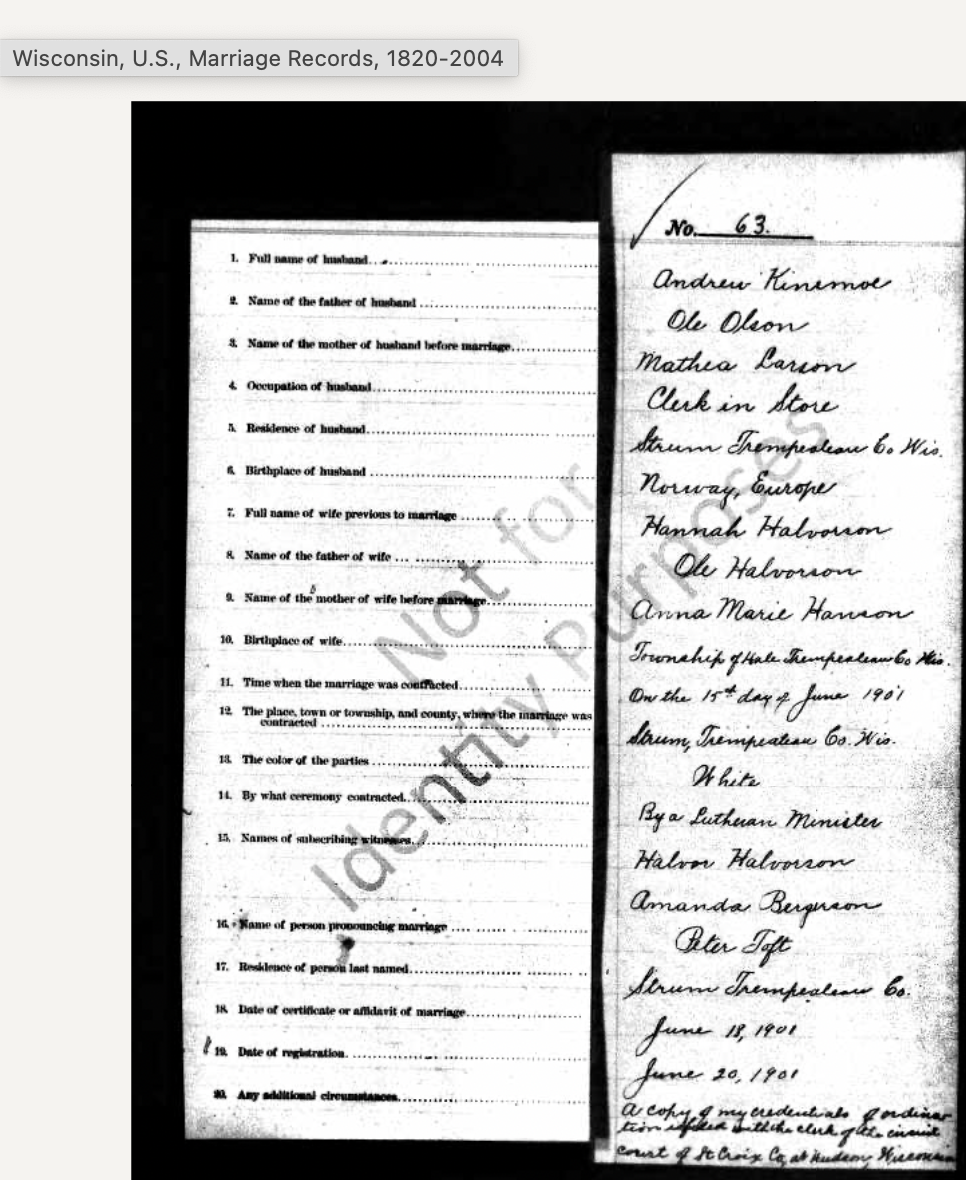 Wisconsin, U.S., Marriage Records, 1820-2004
No. 63.
1. Full name of husband Andrew Kinsmoe
2. Name of the father of husband Ole Olson
3. Name of the mother of husband before marriage Mathea Larson
4. Occupation of husband Clerk in Store
5. Residence of husband Strum Trempealeau Co Wis.
6. Birthplace of husband Norway, Europe
7. Full name of wife previous to marriage Hannah Halvorson
8. Name of the father of wife Ole Halvorson
9. Name of the mother of wife before marriage Anna Marie Hanson
10. Birthplace of wife Township of Hale Trempealeau Co Wis.
11. Time when the marriage was contracted On the 15th day of June 1901
12. The place, town or township, and county, where the marriage was
contracted Strum, Trempealeau Co. Wis.
13. The color of the parties White
14. By what ceremony contracted By a Lutheran Minister
15. Names of subscribing witnesses Halvor Halvorson
Amanda Bergerson
16. Name of person pronouncing marriage Peter Toft
17. Residence of person last named Strum Trempealeau Co.
18. Date of certificate or affidavit of marriage June 18, 1901
19. Date of registration June 20, 1901
20. Any additional circumstances A copy of my credentials of ordina
tion is filed with the clerk of the circuit
court of St Croix Co, at Hudson, Wisconsin
Not for
Identity Purposes